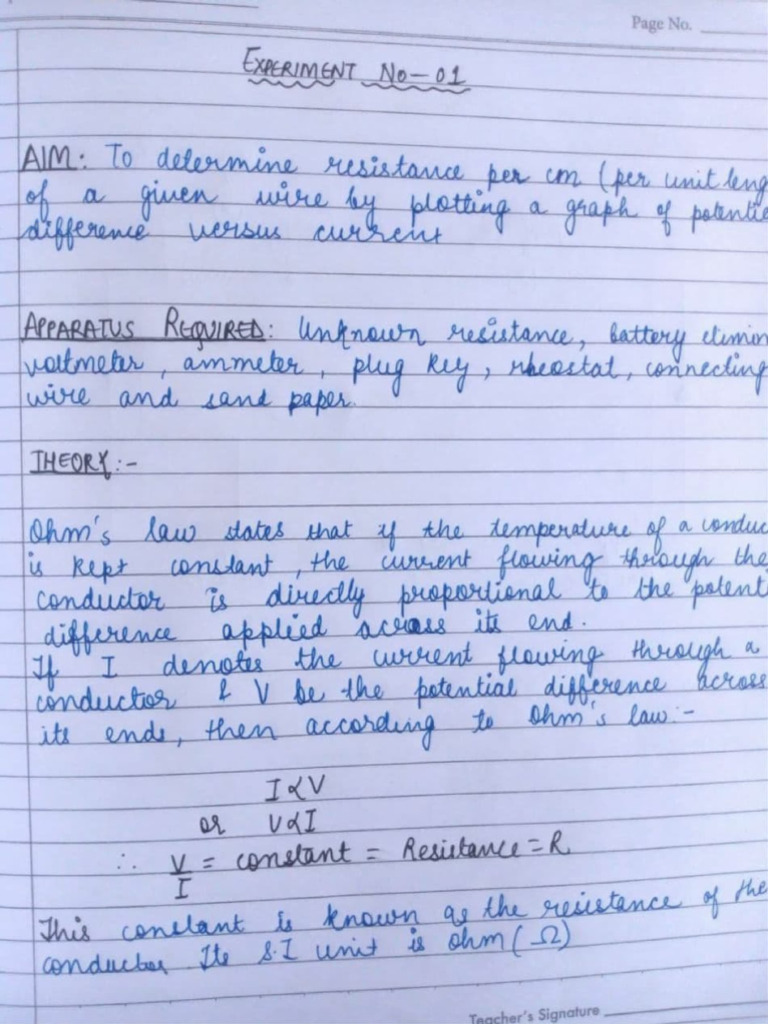 Page No.
EXPERIMENT No-01
AIM: To determine resistance per cm (per unit leng
of a given wire by plotting a graph of potentie
difference versus current
APPARATUS REQUIRED: Unknown resistance, battery elimin
voltmeter, ammeter, plug key, rheostat, connecting
wire and sand paper.
THEORY:-
Ohm's law states that if the temperature of a conduc
is kept constant, the current flowing through the
conductor is directly proportional to the potenti
difference applied across its end.
If I denotes the current flowing through a
conductor & V be the potential difference across
its ends, then according to Ohm's law:-
I∝V
or V∝I
∴ V/I = constant = Resistance = R
This constant is known as the resistance of the
conductor Its S.I unit is ohm (Ω)
Teacher's Signature